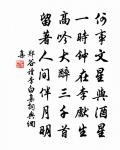 何事文星與酒星
一時鍾在李先生
高吟大醉三千首
留著人間伴月明
鄭谷讀李白集詞典網